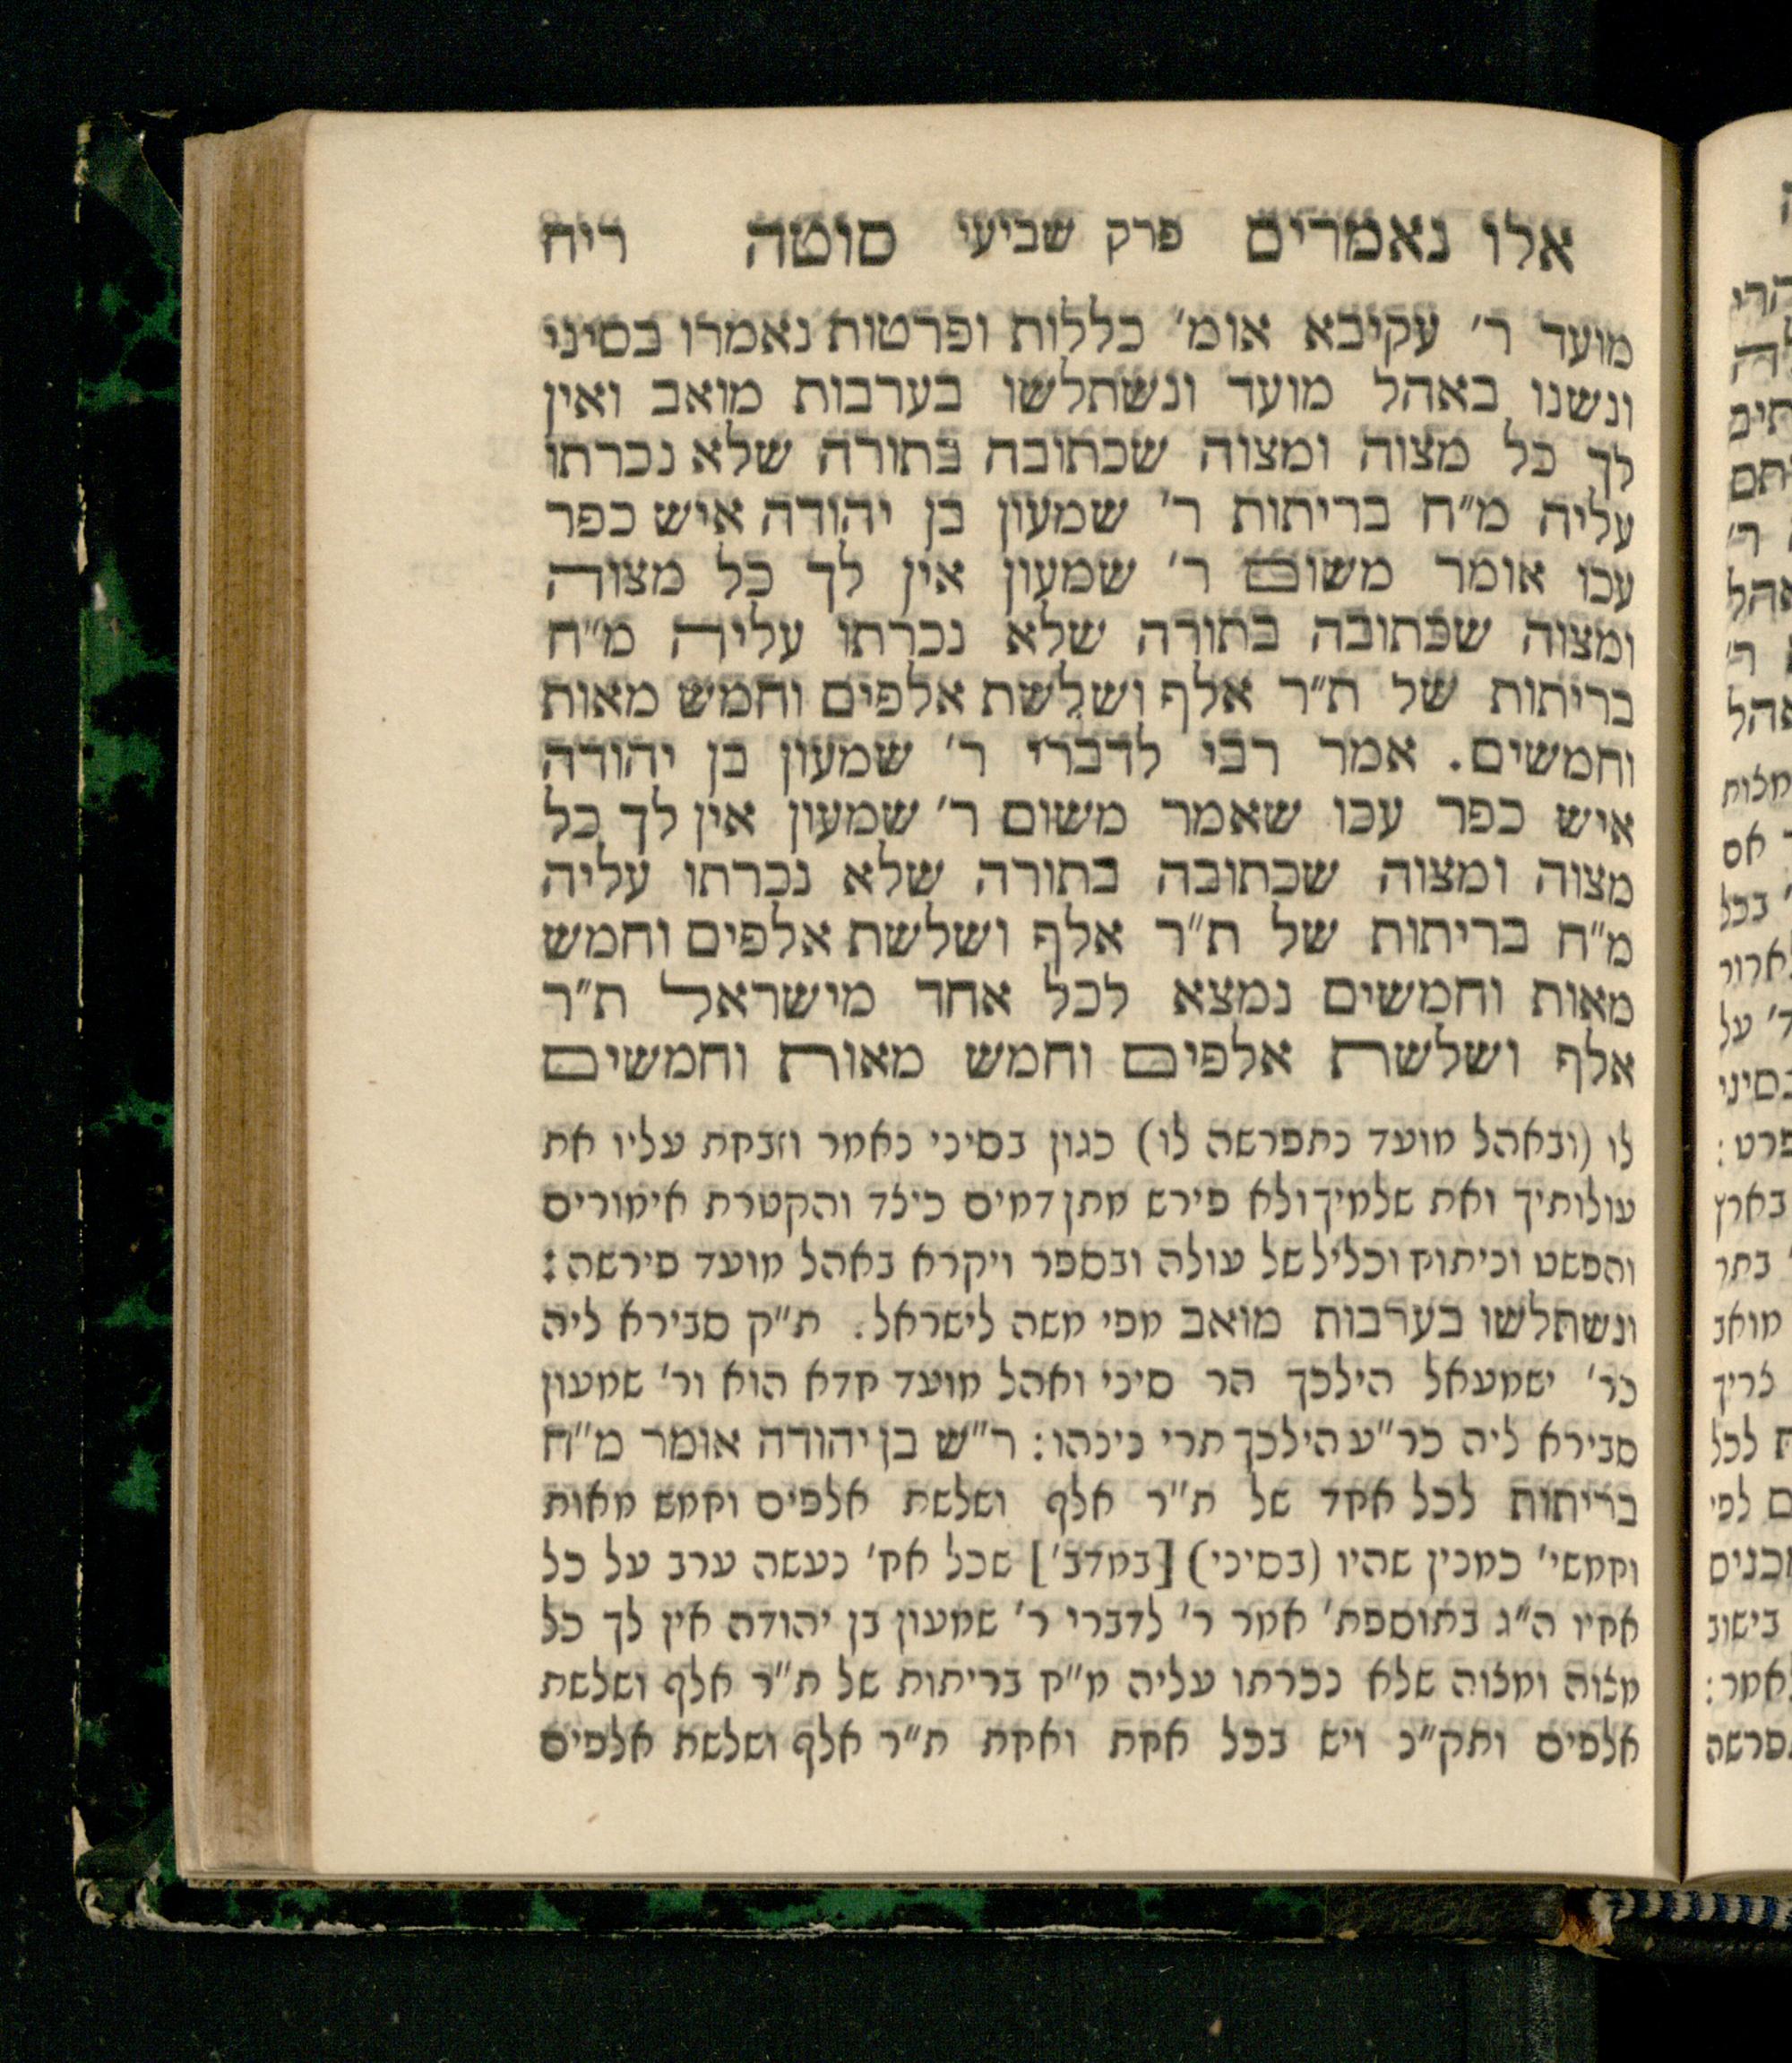 אלו נאמרים פרק שביעי סוטה ריח
מועד ר׳ עקיבא אומ׳ כללות ופרטות נאמרו בסיני
ונשנו באהל מועד ונשתלשו בערבות מואב ואין
לך כל מצוה ומצוה שכתובה בתורה שלא נכרתו
עליה מ״ח בריתות ר׳ שמעון בן יהודה איש כפר
עכו אומר משום ר׳ שמעון אין לך כל מצוה
ומצוה שכתובה בתורה שלא נכרתו עליה מ״ח
בריתות של ת״ר אלף ושלשת אלפים וחמש מאות
וחמשים. אמר רבי לדברי ר׳ שמעון בן יהודה
איש כפר עכו שאמר משום ר׳ שמעון אין לך כל
מצוה ומצוה שכתובה בתורה שלא נכרתו עליה
מ״ח בריתות של ת״ר אלף ושלשת אלפים וחמש
מאות וחמשים נמצא לכל אחד מישראל ת״ר
אלף ושלשת אלפים וחמש מאות וחמשים
לו (ובאהל מועד נתפרשה לו) כגון בסיני נאמר וזבחת עליו את
עולותיך ואת שלמיך ולא פירש מתן דמים כיצד והקטרת אימורים
והפשט וניתוח וכליל של עולה ובספר ויקרא באהל מועד פירשה:
ונשתלשו בערבות מואב מפי משה לישראל. ת״ק סבירא ליה
כר׳ ישמעאל הילכך הר סיני ואהל מועד חדא הוא ור׳ שמעון
סבירא ליה כר״ע הילכך תרי נינהו: ר״ש בן יהודה אומר מ״ח
בריתות לכל אחד של ת״ר אלף ושלשת אלפים וחמש מאות
וחמשי׳ כמנין שהיו (בסיני) [במדב׳] שכל אח׳ נעשה ערב על כל
אחיו ה״ג בתוספת׳ אמר ר׳ לדברי ר׳ שמעון בן יהודה אין לך כל
מצוה ומצוה שלא נכרתו עליה מ״ח בריתות של ת״ר אלף ושלשת
אלפים ותק״נ ויש בכל אחת ואחת ת״ר אלף ושלשת אלפים